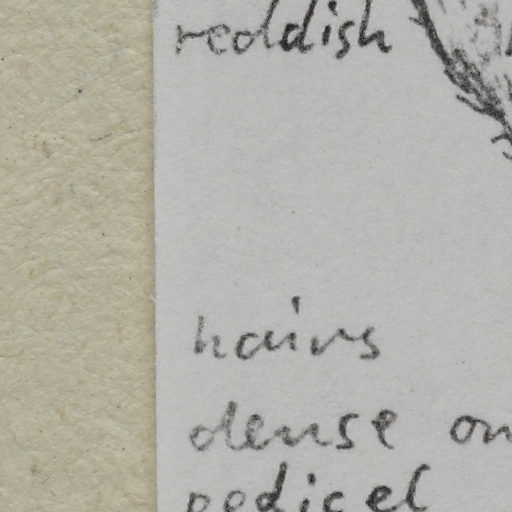 reddish
hairs
dense on
pedicel